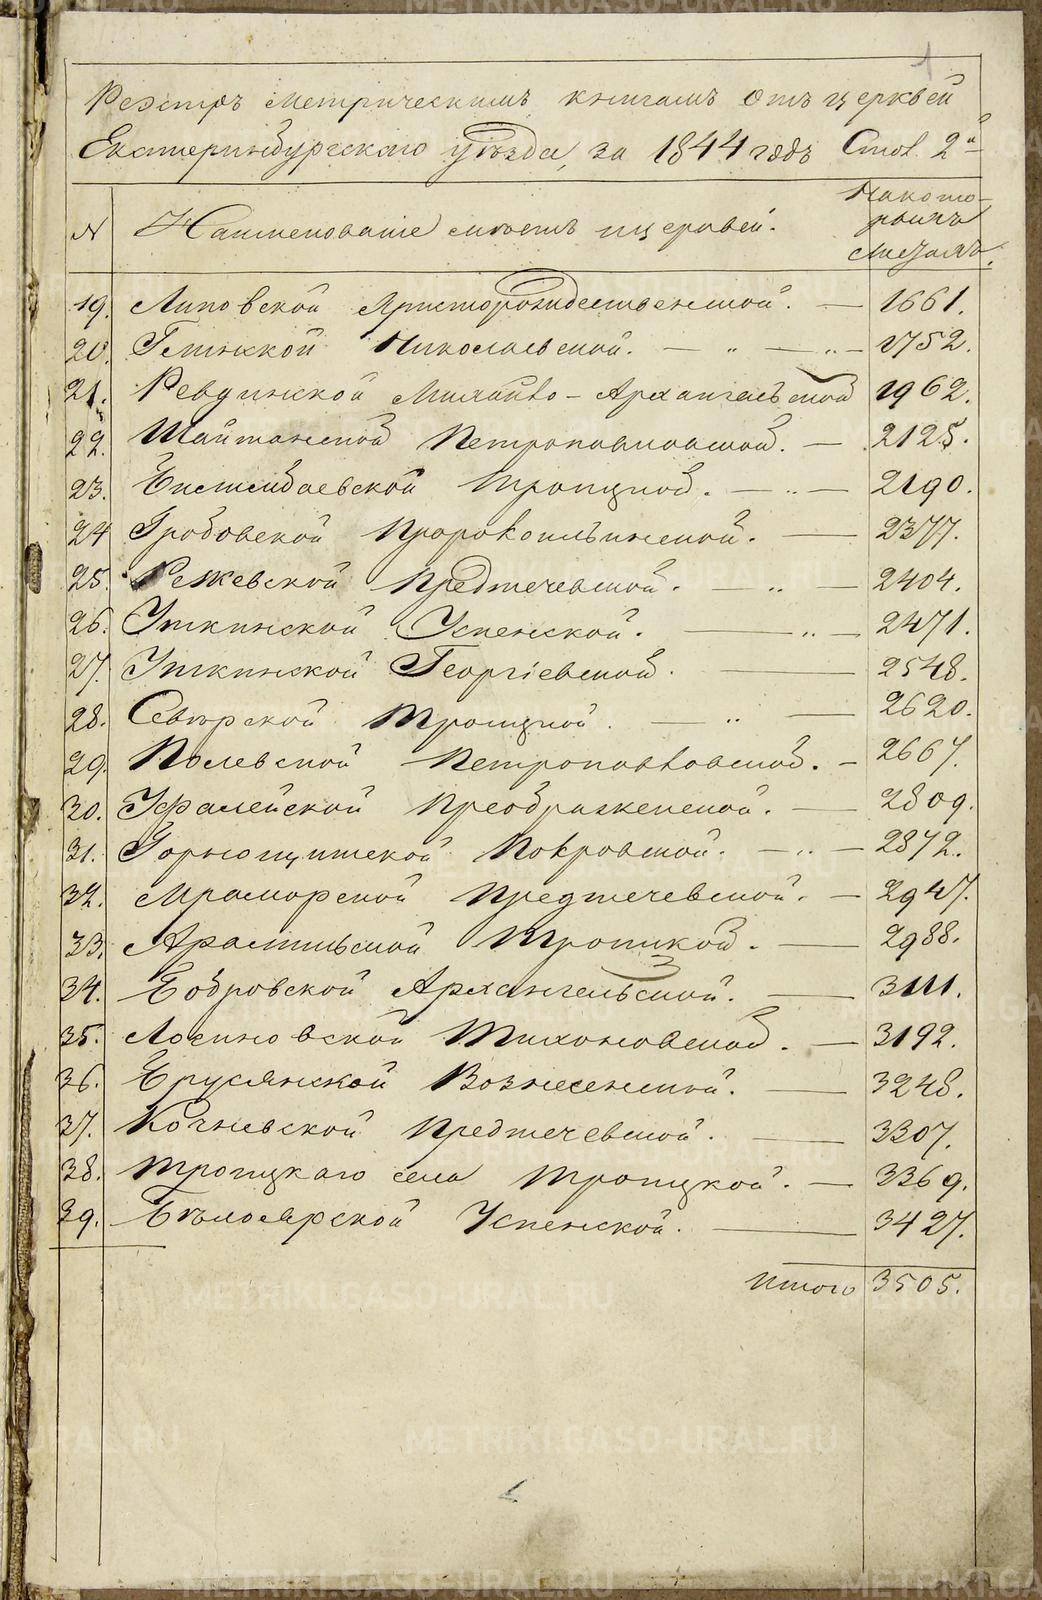 METRIKI.GASO-URAL.RU
1
Реэстръ метрическимъ книгамъ отъ церквей
Екатеринбургскаго уѣзда, за 1844 годъ Столъ 2й
N Наименованіе мѣстъ и церквей. На кото-
рыхъ
листахъ.
19. Липовской Христорождественской. — 1661.
20. Глинской Николаевской. — „ — „ — 1752.
21. Ревдинской Михайло-Архангельской 1962.
22. Шайтанской Петропавловской. — 2125.
23. Бисертской Троицкой. — „ — 2190.
24 Гробовской Пророкоильинской. — 2377.
25. Режевской Предтечевской. — „ — 2404.
26. Уткинской Успенской. — „ — 2471.
27. Уткинской Георгіевской. — 2548.
28. Сѣверской Троицкой. — „ — 2620.
29. Полевской Петропавловской. — 2667.
30. Уфалейской Преображенской. — 2809.
31. Горнощитской Покровской. — „ — 2872.
32. Мраморской Предтечевской. — 2947.
33. Арамильской Троицкой. — 2988.
34. Бобровской Архангельской. — 3111.
35. Логиновской Тихоновской. — 3192.
36. Бруснянской Вознесенской. — 3248.
37. Кочневской Предтечевской. — 3307.
38. Троицкаго села Троицкой. — 3369.
39. Бѣлоярской Успенской. — 3427.
Итого 3505.
METRIKI.GASO-URAL.RU
METRIKI.GASO-URAL.RU
METRIKI.GASO-URAL.RU